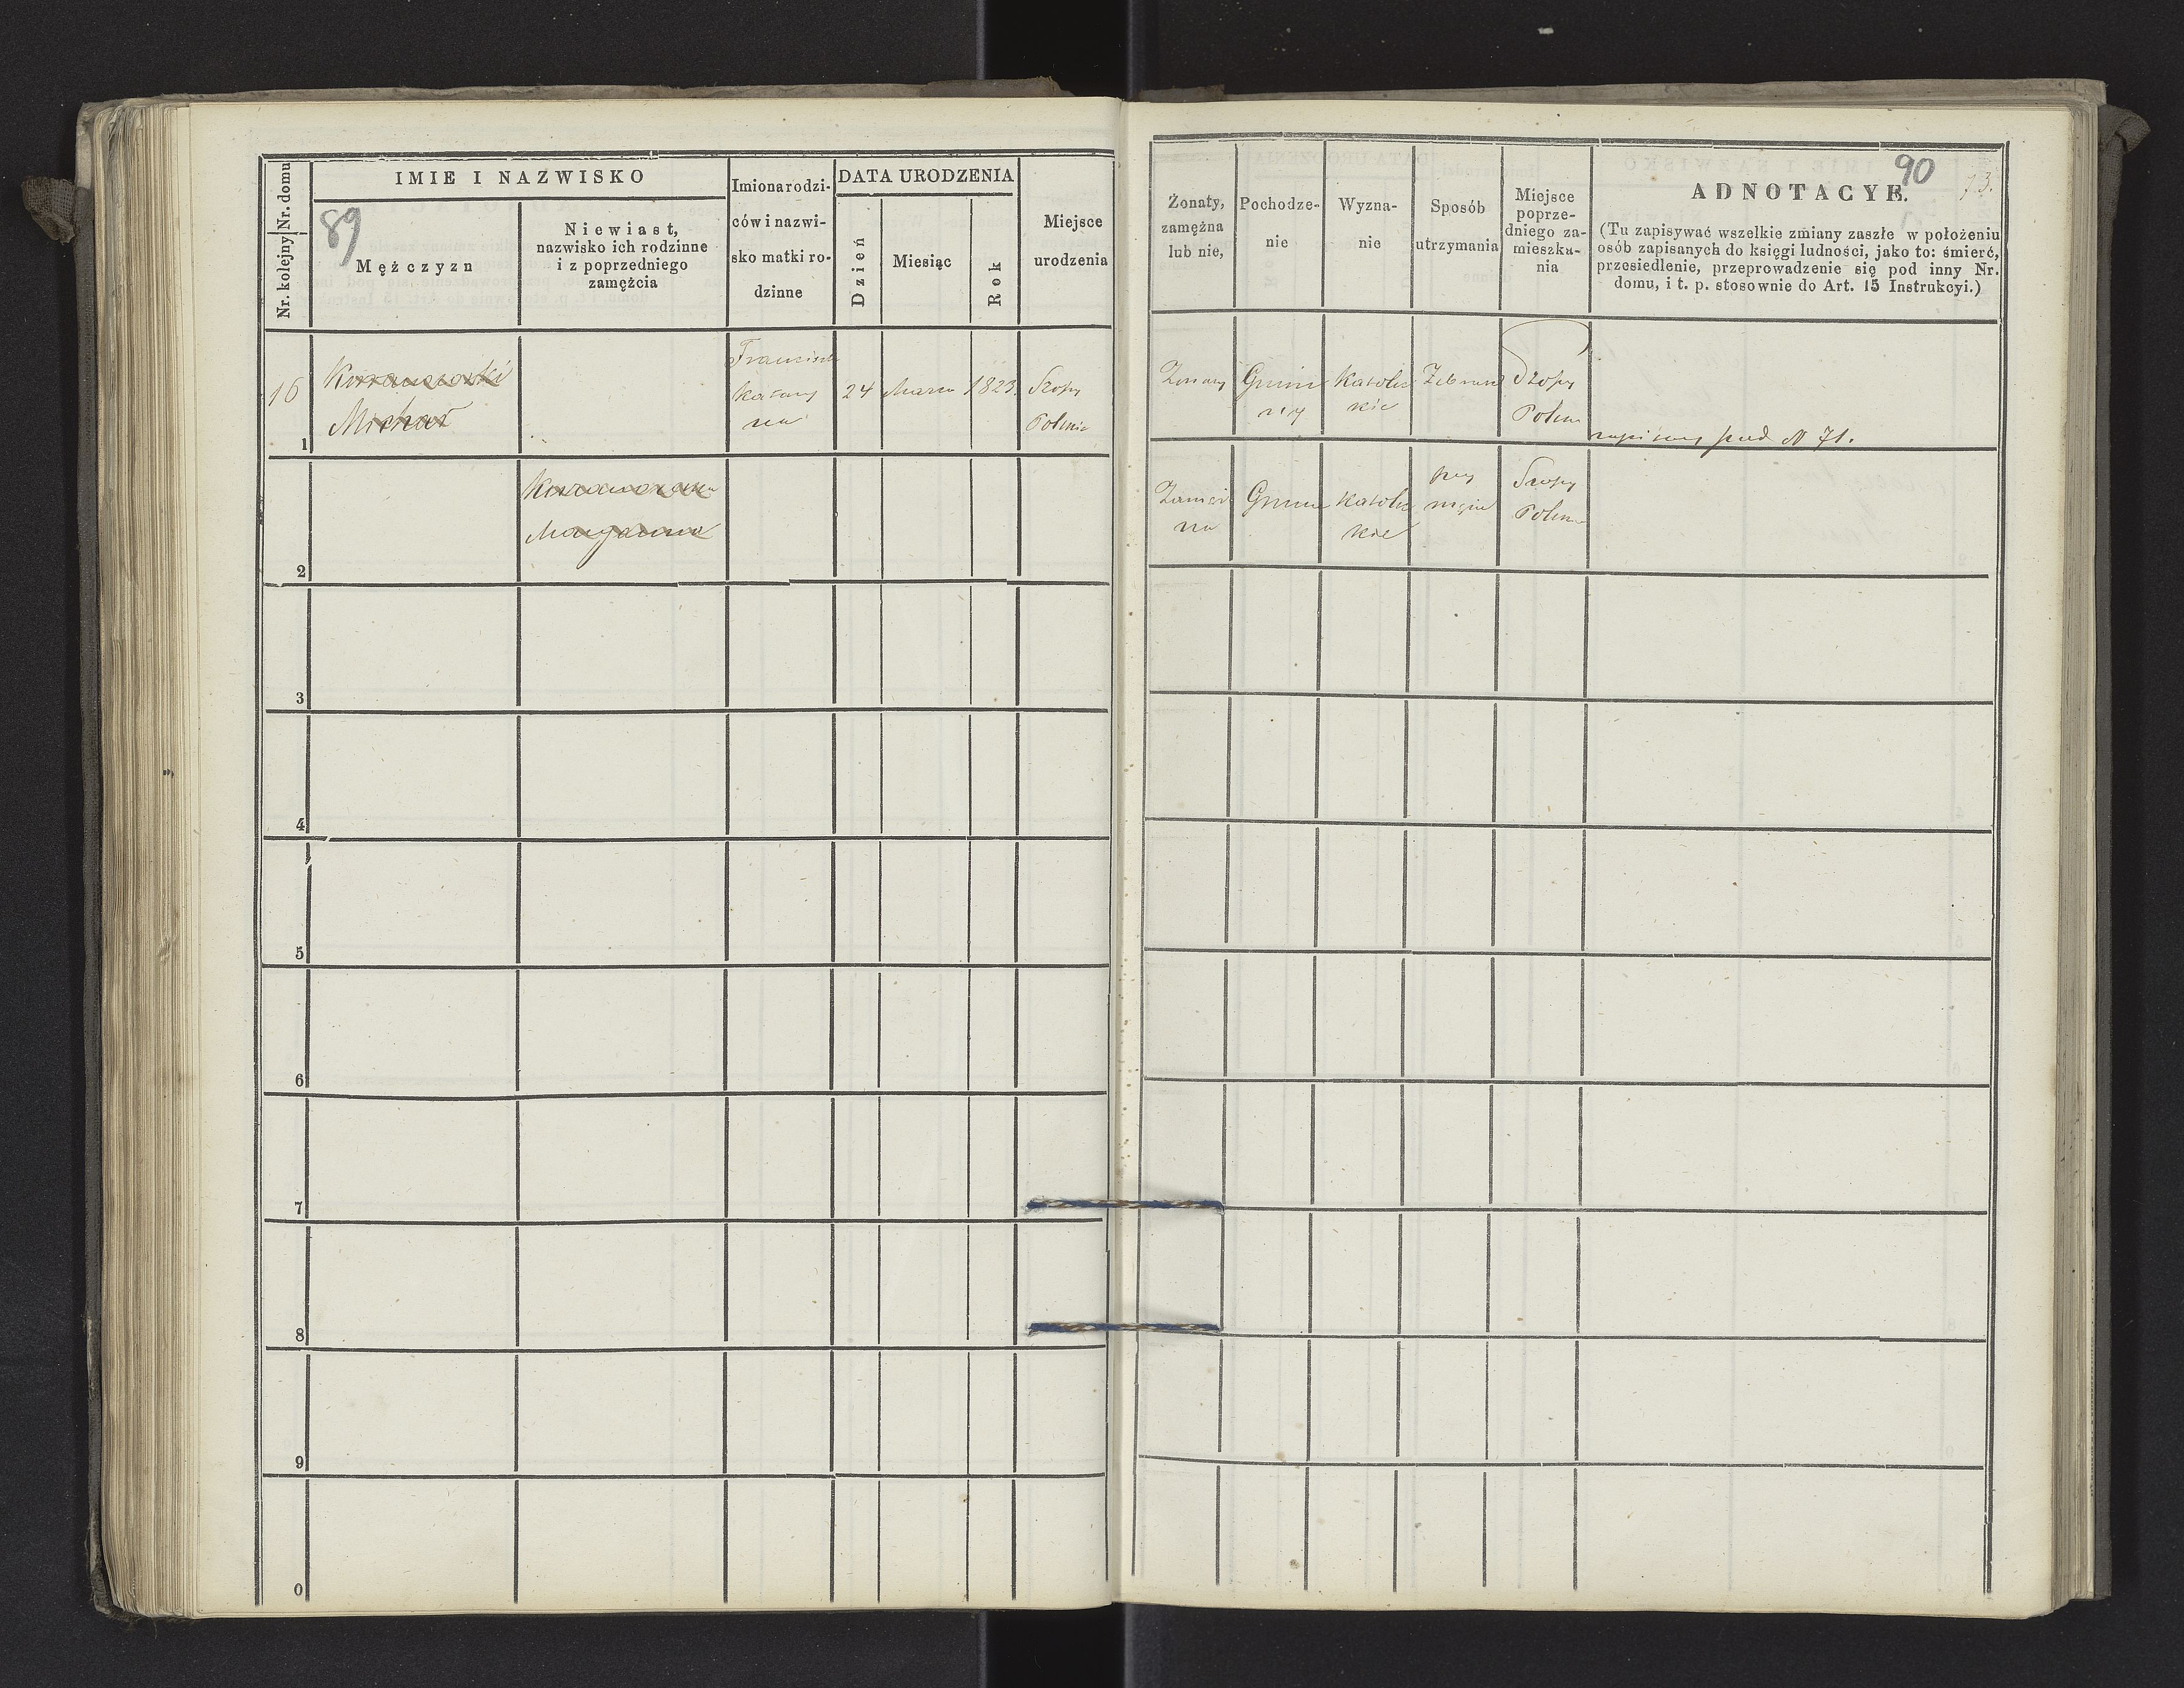 89
Nr. kolejny Nr. domu
IMIE I NAZWISKO
Mężczyzn
Niewiast,
nazwisko ich rodzinne
i z poprzedniego
zamężcia
Imiona rodzi-
ców i nazwi-
sko matki ro-
dzinne
DATA URODZENIA
Dzień
Miesiąc
Rok
Miejsce
urodzenia
16
1
Michał
Francisz
Katarzy
na
24
Marca
1823.
Szopy
Polskie
2
Maryanna
3
4
5
6
7
8
9
0
90
73.
Żonaty,
zamężna
lub nie,
Pochodze-
nie
Wyzna-
nie
Sposób
utrzymania
Miejsce
poprze-
dniego za-
mieszka-
nia
ADNOTACYE.
(Tu zapisywać wszelkie zmiany zaszłe w położeniu
osób zapisanych do księgi ludności, jako to: śmierć,
przesiedlenie, przeprowadzenie się pod inny Nr.
domu, i t. p. stosownie do Art. 15 Instrukcyi.)
Żonaty
Gmin
ny
Katolic
kie
Szopy
Polskie
zapisany pod N 71.
Zamęż
na
Gminn
Katolic
kie
przy
mężu
Szopy
Polskie